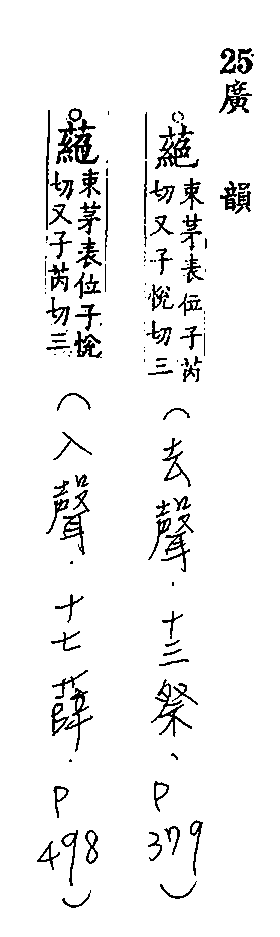 25廣韻
○蕝束茅表位子芮切又子悅切三(去聲．十三祭、P379)
○蕝束茅表位子悅切又子芮切三(入聲．十七薛．P498)